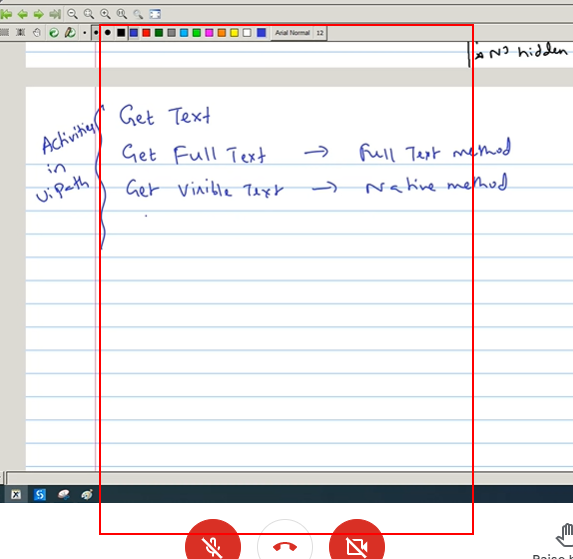 Arial Normal 12
is No hidden
Activities in UiPath
Get Text
Get Full Text → Full Text method
Get Visible Text → Native method